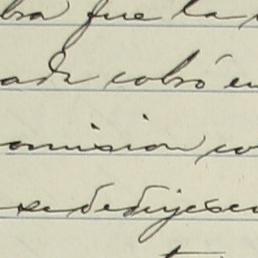 bra fue la
ada cobró en
omision co
se dedujesen